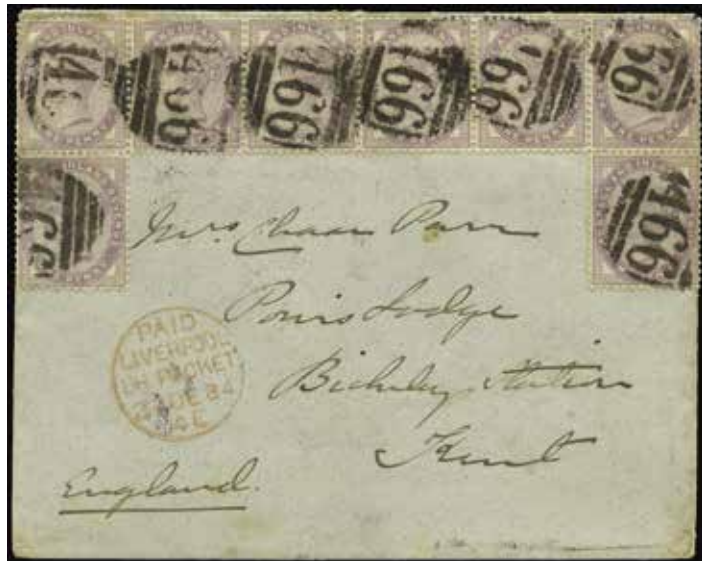 466
466
466
466
466
466
466
Mrs Chas Parr
Powis Lodge
Bickley Station
Kent
England.
PAID
LIVERPOOL
BR. PACKET
DE 84
4E